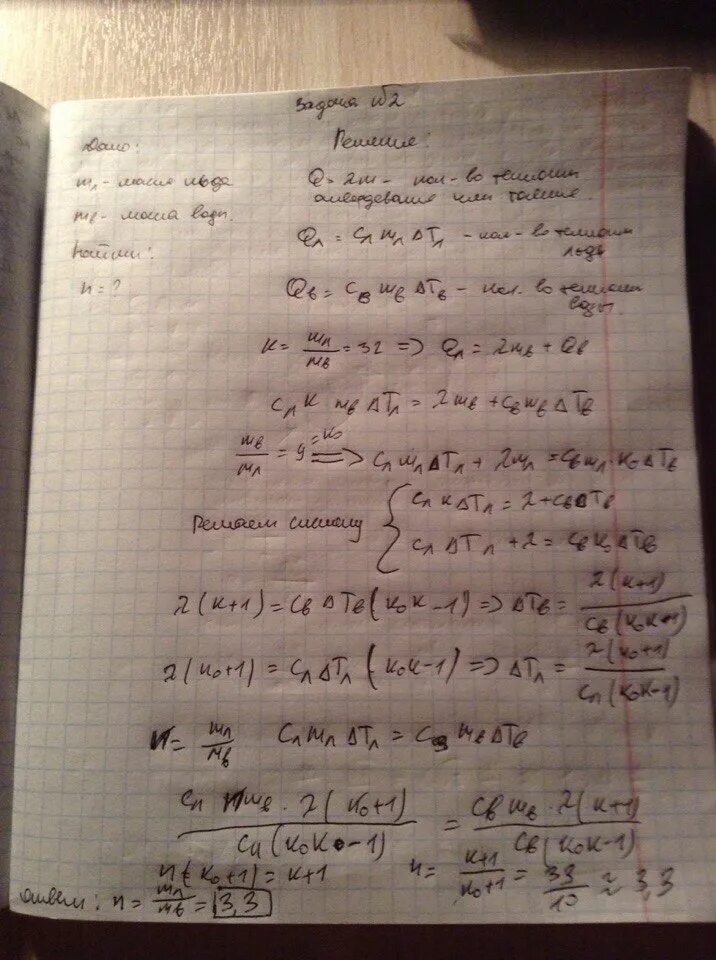 Задача №2
Дано:
Решение:
mл - масса льда
mв - масса воды.
Найти:
n = ?
Q = λm - кол-во теплоты
отвердевание или таяние.
Qл = Cл mл ΔTл - кол-во теплоты
льда
Qв = Cв mв ΔTв - кол. во теплоты
воды.
K = mл/mв = 32 => Qл = λmв + Qв
Cл K mв ΔTл = λmв + Cв mв ΔTв
mв/mл = 9 = K₀ => Cл mл ΔTл + λmл = Cв mл · K₀ ΔTв
Решаем систему { Cл K ΔTл = λ + Cв ΔTв
Cл ΔTл + λ = Cв K₀ ΔTв
λ(K+1) = Cв ΔTв (K₀K - 1) => ΔTв = λ(K+1) / Cв(K₀K-1)
λ(K₀+1) = Cл ΔTл (K₀K-1) => ΔTл = λ(K₀+1) / Cл(K₀K-1)
n = mл/mв Cл mл ΔTл = Cв mв ΔTв
Cл n mв · λ(K₀+1) / Cл(K₀K-1) = Cв mв · λ(K+1) / Cв(K₀K-1)
n(K₀+1) = K+1 n = K+1 / K₀+1 = 33/10 ≈ 3,3
Ответ: n = mл/mв = 3,3